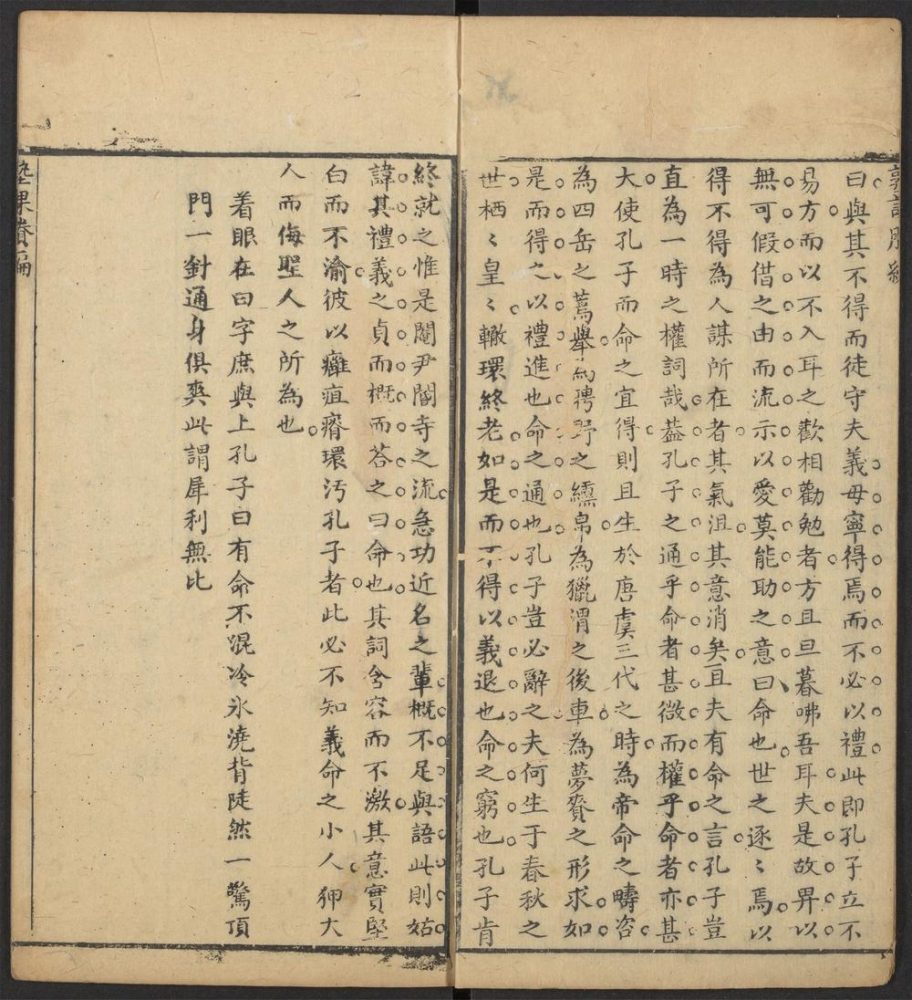 曰與其不得而徒守夫義毋寧得焉而不必以禮此即孔子立不
易方而以不入耳之歡相勸勉者方且旦暮咈吾耳夫是故畀以
無可假借之由而流示以愛莫能助之意曰命也世之逐〻焉以
得不得為人謀所在者其氣沮其意消矣且夫有命之言孔子豈
直為一時之權詞哉葢孔子之通乎命者甚微而權乎命者亦甚
大使孔子而命之宜得則且生於唐虞三代之時為帝命之疇咨
為四岳之薦舉為聘野之纁帛為獵渭之後車為夢賚之形求如
是而得之以禮進也命之通也孔子豈必辭之夫何生于春秋之
世栖〻皇〻轍環終老如是而不得以義退也命之窮也孔子肯
終就之惟是閹尹閽寺之流急功近名之輩概不足與語此則姑
諱其禮義之貞而概而荅之曰命也其詞含容而不激其意實堅
白而不渝彼以癰疽瘠環汚孔子者此必不知義命之小人狎大
人而侮聖人之所為也
着眼在曰字庶與上孔子曰有命不混冷氷澆背陡然一驚頂
門一針通身俱爽此謂犀利無比